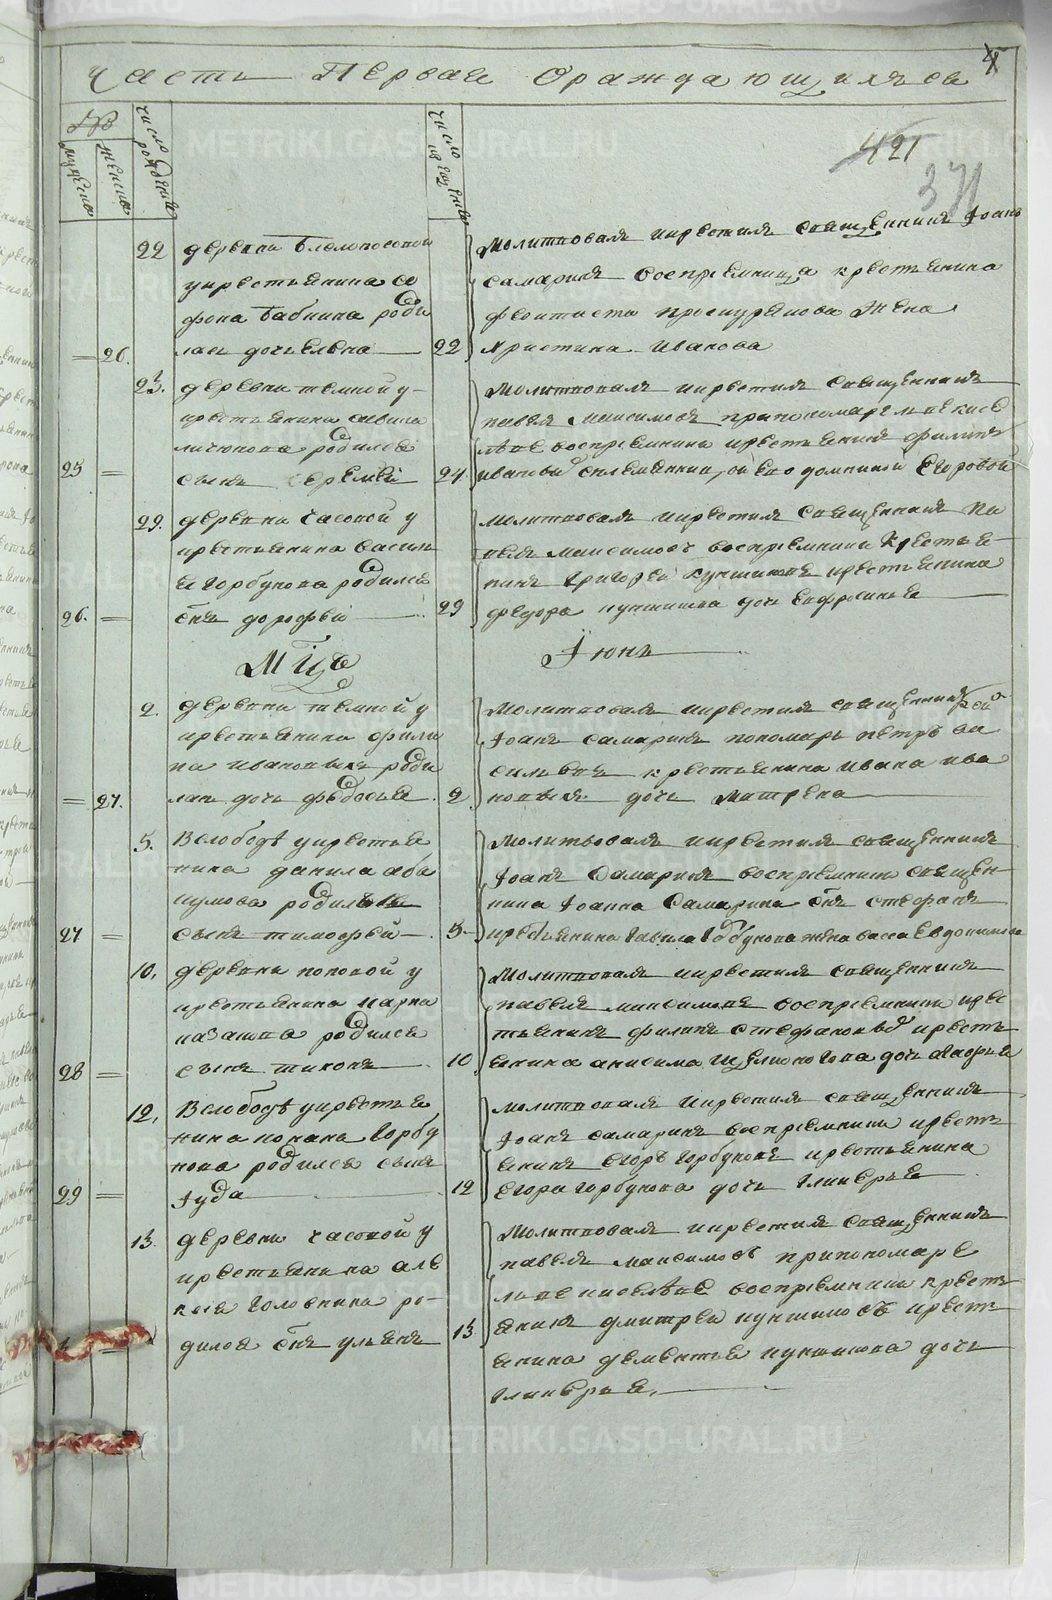 Часть Первая О раждающихся
421
371
№
мужеска
женска
число рожденiя
число крещенiя
22 деревни Белоносовой
у крестьянина
фона Бабкина роди
26. лась дочь Елена
22
Молитвовалъ и крестилъ священникъ Iоанъ
Самаринъ воспрiемница крестьянина
Феоктиста Проскурякова Жена
Христина Иванова
23. деревни темной у
крестьянина Савина
родился
25 сынъ Еремей
24.
Молитвовалъ и крестилъ священникъ
павелъ максимовъ при пономаре
воспрiемники крестьянинъ филипъ
Ивановъ Егоровой
29. деревни часовой у
крестьянина Василь
я Горбунова родился
26. снъ дорофей
29
Молитвовалъ и крестилъ священникъ Па
велъ максимовъ воспрiемники Крестья
нинъ Григорей кукшиновъ крестьянина
федора кукшинова дочь Евфросинья
Мцъ Iюнь
2. деревни темной у
крестьянина фили
па Ивановыхъ роди
27. лась дочь федосья
2
Молитвовалъ и крестилъ священникъ
Iоанъ Самаринъ пономарь петръ ва
сильевъ крестьянина ивана ива
новыхъ дочь Матрена
5. В слободѣ у крестья
нина данила аба
кумова родился
27 сынъ тимофей
5
Молитвовалъ и крестилъ священникъ
Iоанъ Самаринъ воспрiемники священ
ника Iоанна Самарина снъ стефанъ
крестьянина Горбунова жена васса Евдокимова
10. деревни поповой у
крестьянина карпа
казанцова родился
28 сынъ тихонъ
10
Молитвовалъ и крестилъ священникъ
павелъ максимовъ воспрiемники кре
стьянинъ филипъ стефановъ кресть
янина анисима дочь
12. В слободѣ у крестья
нина конана Горбу
нова родился сынъ
29 Iуда
12
молитвовалъ и крестилъ священникъ
Iоанъ Самаринъ воспрiемники кресть
янинъ Егоръ Горбуновъ крестьянина
Егора Горбунова дочь Гликерья
13. деревни часовой у
крестьянина але
ксея Головкина ро-
дился снъ ульянъ
13
Молитвовалъ и крестилъ священникъ
павелъ максимовъ при пономаре
воспрiемники кресть
янинъ дмитрей кукшиновъ кресть
янина дементья кукшинова дочь
Гликерья.